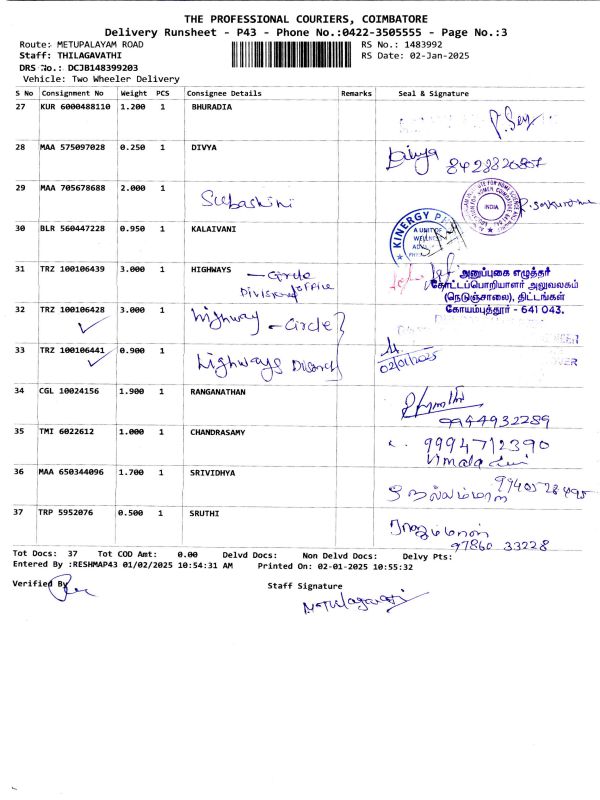 THE PROFESSIONAL COURIERS, COIMBATORE
Delivery Runsheet - P43 - Phone No.:0422-3505555 - Page No.:3
Route: METUPALAYAM ROAD RS No.: 1483992
Staff: THILAGAVATHI RS Date: 02-Jan-2025
DRS No.: DCJB148399203
Vehicle: Two Wheeler Delivery
S No Consignment No Weight PCS Consignee Details Remarks Seal & Signature
27 KUR 6000488110 1.200 1 BHURADIA
28 MAA 575097028 0.250 1 DIVYA Divya 8428820807
29 MAA 705678688 2.000 1 Subashini
INDIA
30 BLR 560447228 0.950 1 KALAIVANI
KINERGY
A UNIT OF
31 TRZ 100106439 3.000 1 HIGHWAYS - Circle
Division office
அனுப்புகை எழுத்தர்
கோட்டப்பொறியாளர் அலுவலகம்
(நெடுஞ்சாலை), திட்டங்கள்
கோயம்புத்தூர் - 641 043.
32 TRZ 100106428 3.000 1 highway - Circle
33 TRZ 100106441 0.900 1 highways
02/01/2025
34 CGL 10024156 1.900 1 RANGANATHAN
9944932289
35 TMI 6022612 1.000 1 CHANDRASAMY 9994712390
Vimala
36 MAA 650344096 1.700 1 SRIVIDHYA
37 TRP 5952076 0.500 1 SRUTHI
97860 33228
Tot Docs: 37 Tot COD Amt: 0.00 Delvd Docs: Non Delvd Docs: Delvy Pts:
Entered By :RESHMAP43 01/02/2025 10:54:31 AM Printed On: 02-01-2025 10:55:32
Verified By Staff Signature